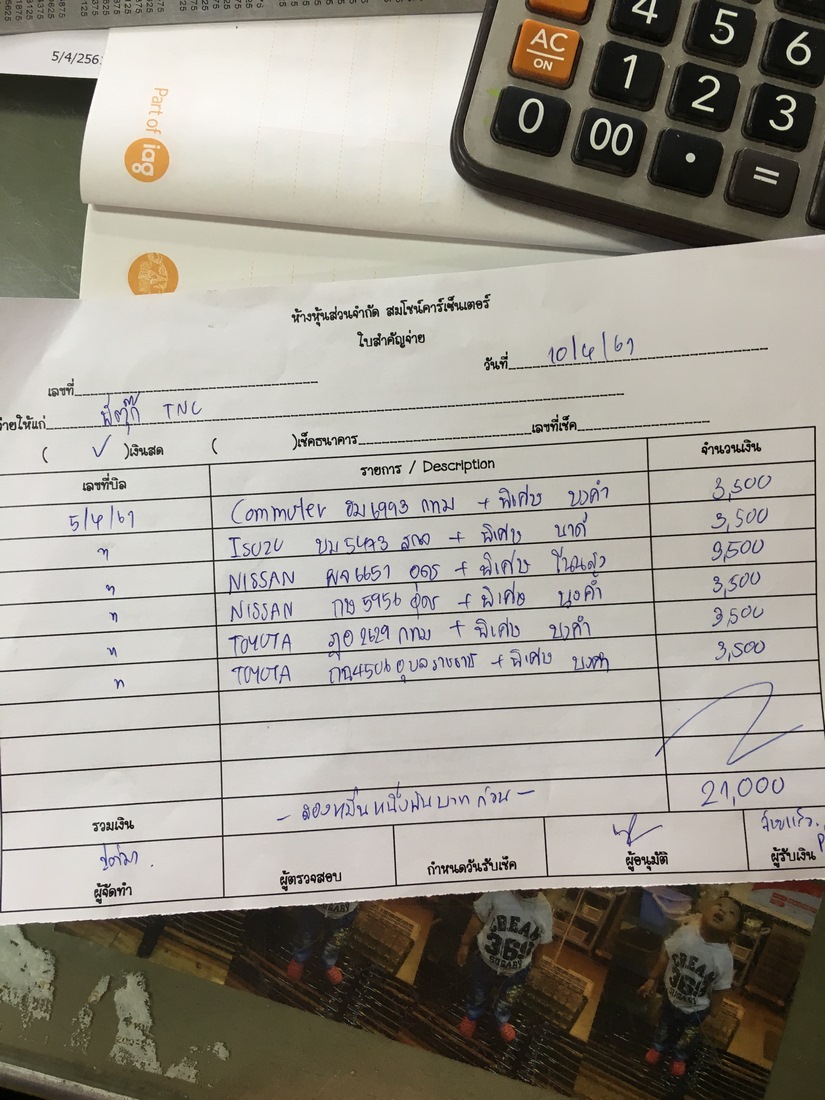 5/4/256
Part of iag
4 5 6
AC
ON
1 2 3
0 00 . =
ห้างหุ้นส่วนจำกัด สมโชน์คาร์เซ็นเตอร์
ใบสำคัญจ่าย
วันที่ 10/4/61
เลขที่
จ่ายให้แก่ พี่ตุ๊ก TNC
( ✓ )เงินสด ( )เช็คธนาคาร เลขที่เช็ค
เลขที่บิล รายการ / Description จำนวนเงิน
5/4/61 Commuter ฮม6993 กทม + พิเศษ 3,500
" ISUZU บม5473 + พิเศษ นาดี 3,500
" NISSAN ผจ6651 อุดร + พิเศษ 3,500
" NISSAN กษ5956 อุดร + พิเศษ 3,500
" TOYOTA ฎอ2629 กทม + พิเศษ 3,500
" TOYOTA กฉ4506 อุบลราชธานี + พิเศษ 3,500
รวมเงิน - สองหมื่นหนึ่งพันบาทถ้วน - 21,000
ผู้จัดทำ ผู้ตรวจสอบ กำหนดวันรับเช็ค ผู้อนุมัติ ผู้รับเงิน